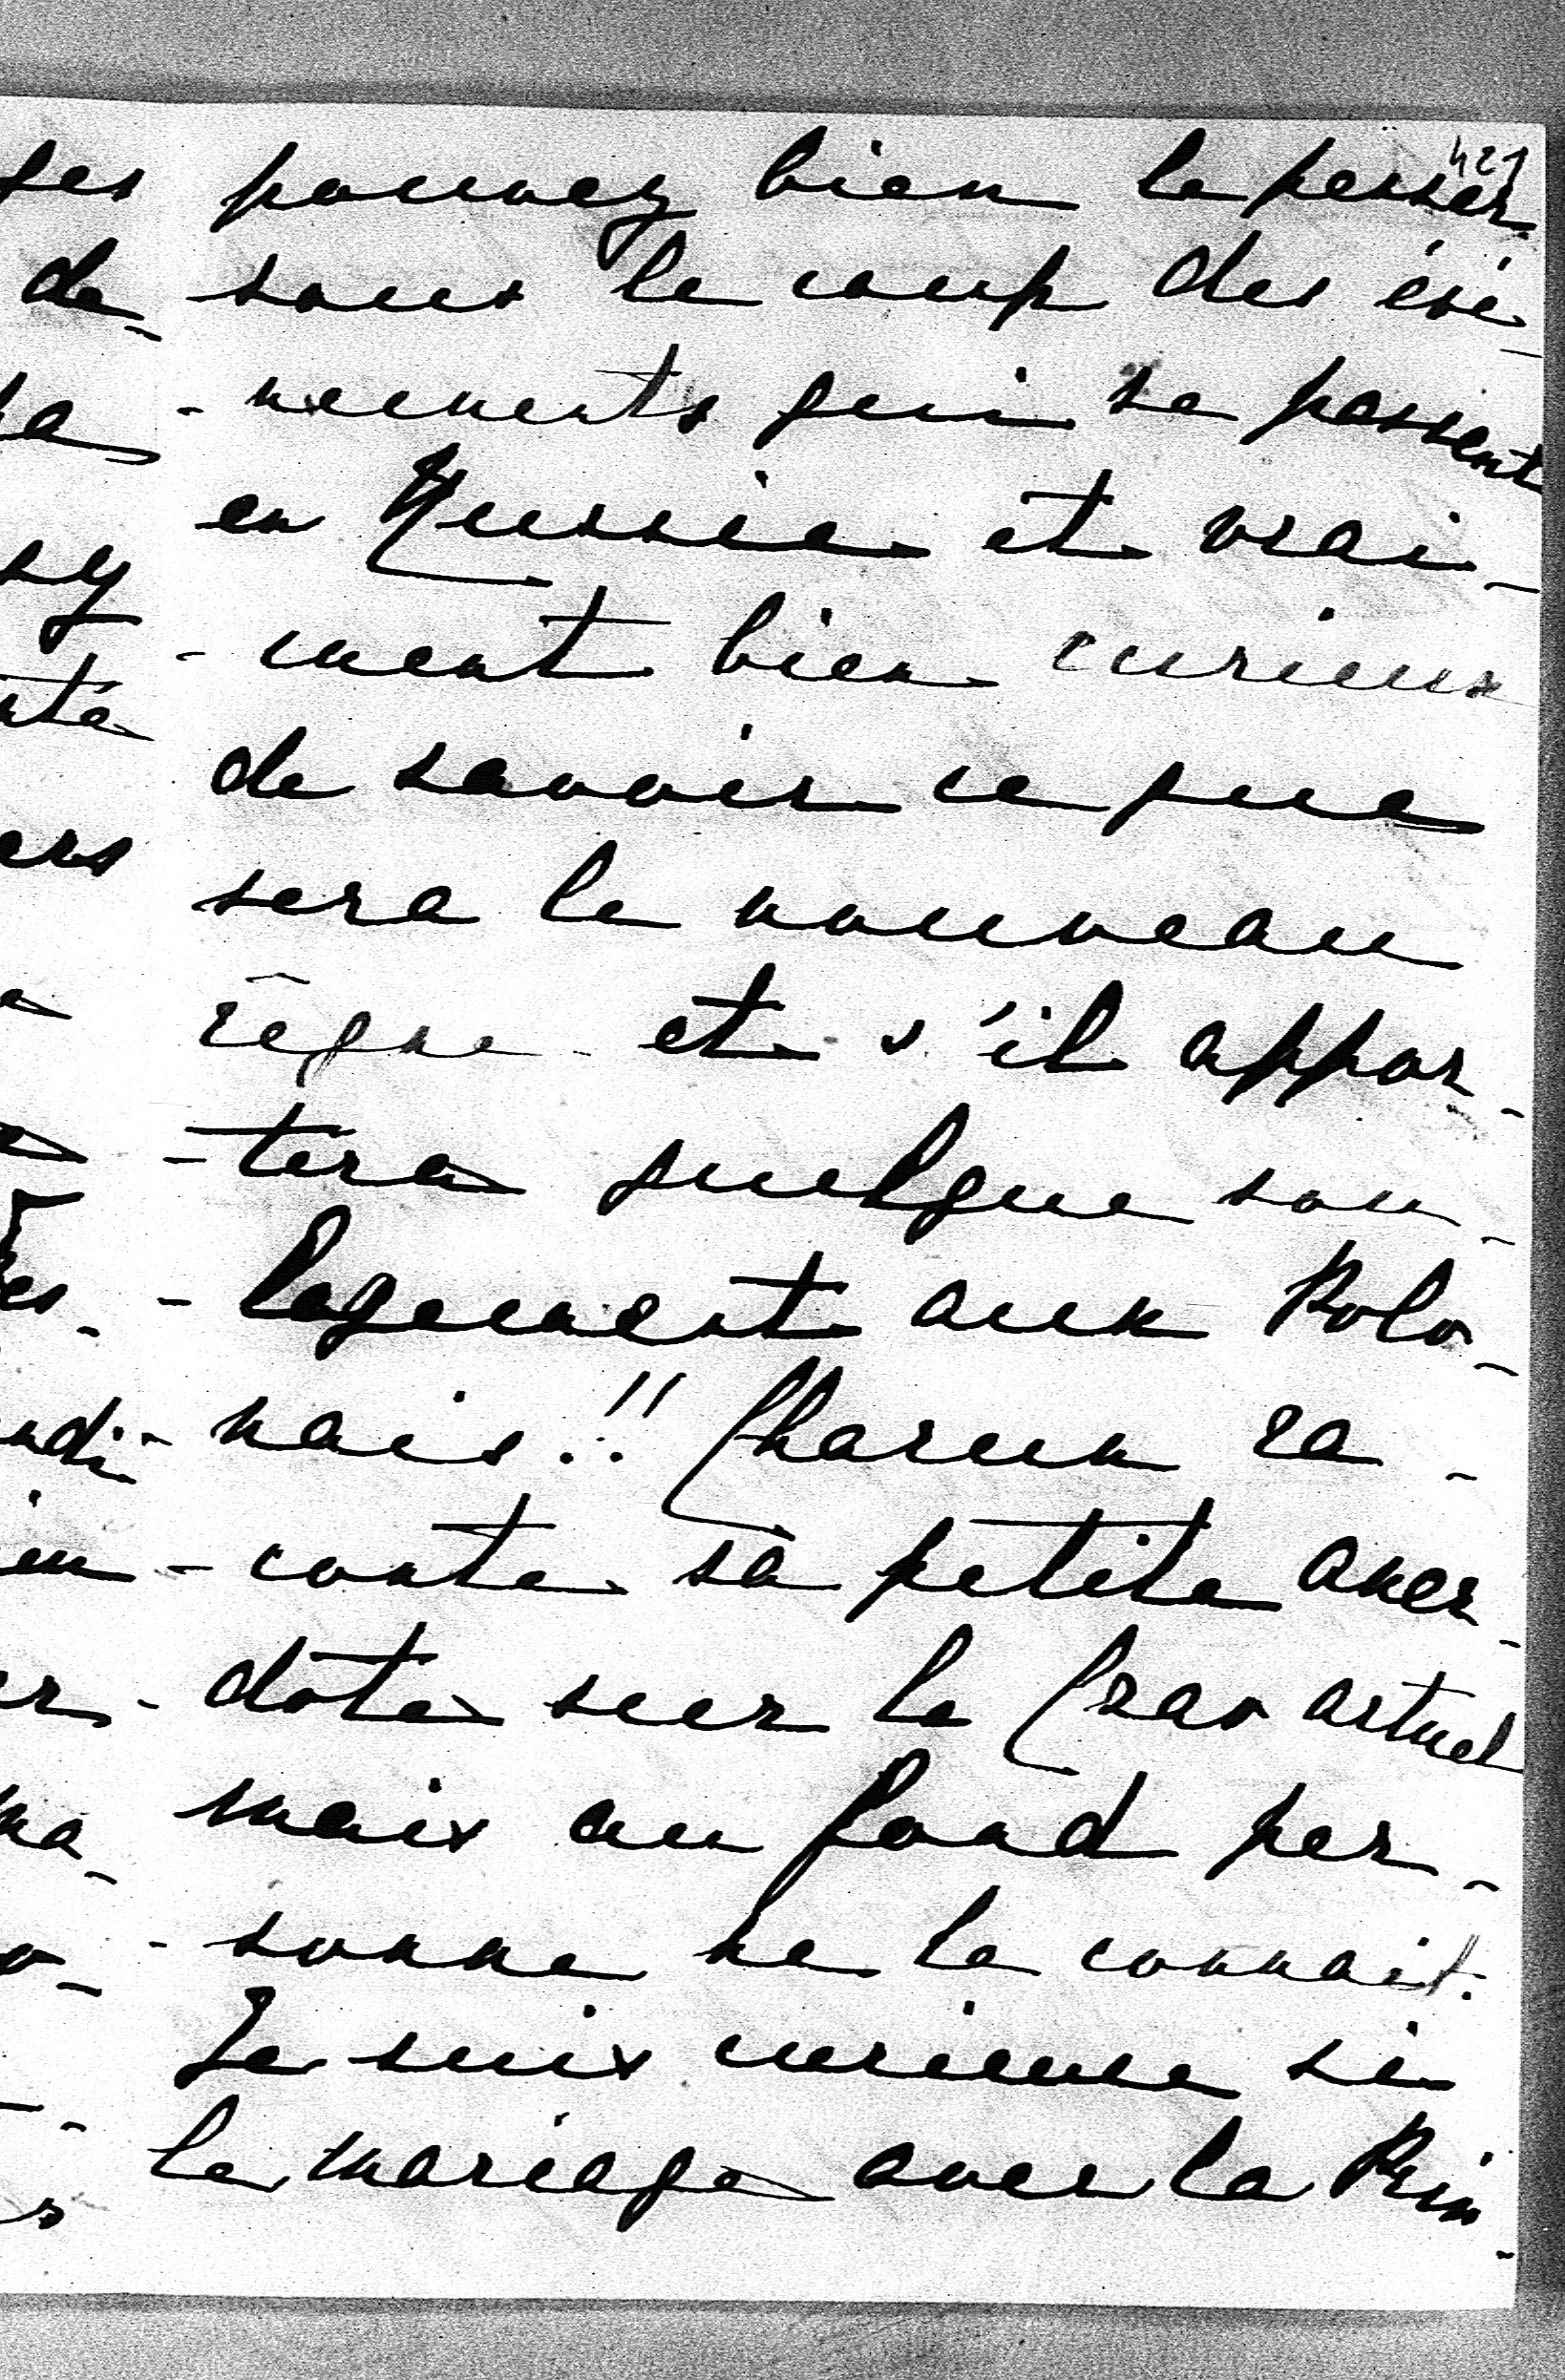 421
pouvez bien le penser
sous le coup des évé-
-nements qui se passent
en Russie et vrai-
-ment bien curieux
de savoir ce que
sera le nouveau
règne et s'il appor-
-tera quelque sou-
-lagement aux Polo-
-nais!! Chacun ra-
-conte sa petite anec-
-dote sur le Czar actuel
mais au fond per-
-sonne ne le connait.
Je suis curieuse si
le mariage avec la Prin-